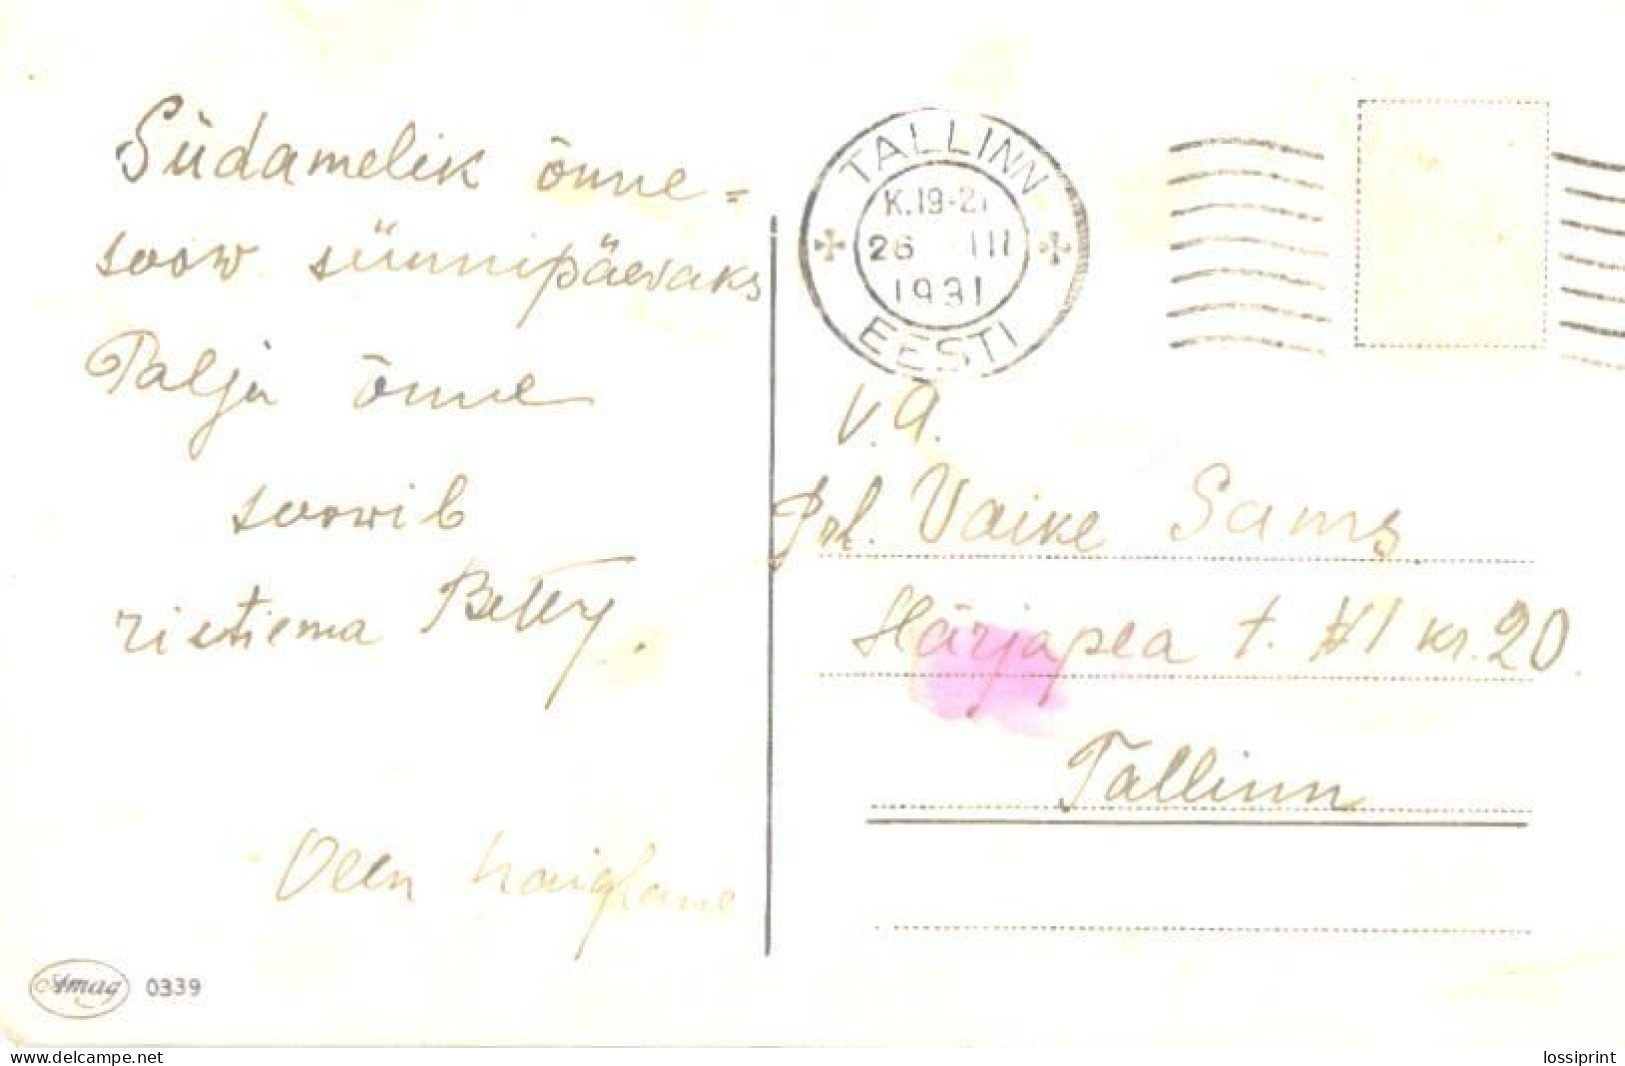 Südamelik õnne=
soow sünnipäevaks
Palju õnne
soowib
ristiema Betty.
Olen haiglane
Amag 0339
TALLINN
K.19-21
26 III
1931
EESTI
V. A.
Prl. Vaike Sams
Härjapea t. #1 kr. 20
Tallinn
www.delcampe.net
lossiprint